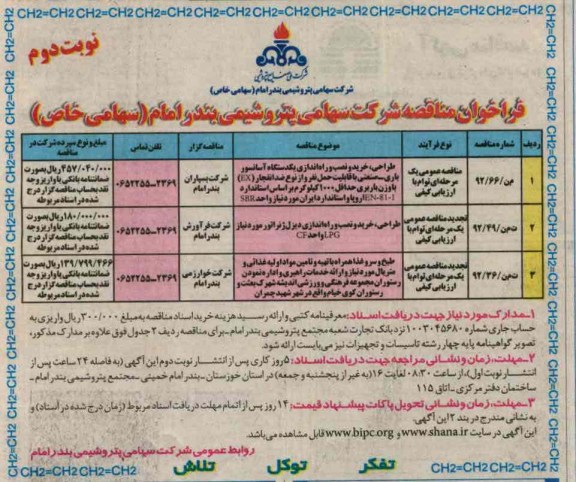 CH2=CH2 CH2=CH2 CH2=CH2 CH2=CH2 CH2=CH2 CH2=CH2 CH2=CH2 CH2=CH2
نوبت دوم
شرکت ملی صنایع پتروشیمی
شرکت سهامی پتروشیمی بندر امام (سهامی خاص)
فراخوان مناقصه شرکت سهامی پتروشیمی بندر امام (سهامی خاص)
ردیف شماره مناقصه نوع فرآیند موضوع مناقصه مناقصه گزار تلفن تماس مبلغ و نوع سپرده شرکت در مناقصه
۱ من/۹۲/۶۶ مناقصه عمومی یک مرحله‌ای توام با ارزیابی کیفی طراحی، خرید و نصب و راه اندازی یکدستگاه آسانسور باری-صنعتی با قابلیت حمل نفر و از نوع ضد انفجار (EX) با وزن باربری حداقل ۱۰۰۰ کیلوگرم بر اساس استاندارد EN-81-1 اروپا و استاندارد ایران مورد نیاز واحد SBR شرکت بسپاران بندر امام ۰۶۵۲۲۵۵-۲۳۶۹ ۴۵۷/۰۴۰/۰۰۰ ریال بصورت ضمانتنامه بانکی یا واریز وجه نقد بحساب مناقصه گزار درج شده در اسناد مربوطه
۲ ت‌من/۹۲/۴۹ تجدید مناقصه عمومی یک مرحله‌ای توام با ارزیابی کیفی طراحی، خرید و نصب و راه اندازی دیزل ژنراتور مورد نیاز LPG واحد CF شرکت فرآورش بندر امام ۰۶۵۲۲۵۵-۲۳۶۹ ۱۸۰/۰۰۰/۰۰۰ ریال بصورت ضمانتنامه بانکی یا واریز وجه نقد بحساب مناقصه گزار درج شده در اسناد مربوطه
۳ ت‌من/۹۲/۳۶ تجدید مناقصه عمومی یک مرحله‌ای توام با ارزیابی کیفی طبخ و سرو غذا همراه با تهیه و تامین مواد اولیه غذائی و متریال مورد نیاز و ارائه خدمات راهبری و اداره نمودن رستوران مجموعه فرهنگی و ورزشی اندیشه شهرک بعثت و رستوران کوی خیام واقع در شهر شهید چمران شرکت خوارزمی بندر امام ۰۶۵۲۲۵۵-۲۳۶۹ ۱۳۹/۷۹۹/۴۶۶ ریال بصورت ضمانتنامه بانکی یا واریز وجه نقد بحساب مناقصه گزار درج شده در اسناد مربوطه
۱-مدارک مورد نیاز جهت دریافت اسناد: معرفینامه کتبی و ارائه رسید هزینه خرید اسناد مناقصه به مبلغ ۳۰۰/۰۰۰ ریال واریزی به
حساب جاری شماره ۱۰۰۳۰۴۵۶۸۰ نزد بانک تجارت شعبه مجتمع پتروشیمی بندر امام - برای مناقصه ردیف ۲ جدول فوق علاوه بر مدارک مذکور،
تصویر گواهینامه پایه چهار رشته تاسیسات و تجهیزات نیز می‌بایست ارائه شود.
۲-مهلت، زمان و نشانی مراجعه جهت دریافت اسناد: ۵ روز کاری پس از انتشار نوبت دوم این آگهی (به فاصله ۲۴ ساعت پس از
انتشار نوبت اول)، از ساعت ۰۸:۳۰ لغایت ۱۶ (به غیر از پنجشنبه و جمعه) در استان خوزستان - بندر امام خمینی - مجتمع پتروشیمی بندر امام -
ساختمان دفتر مرکزی - اتاق ۱۱۵
۳-مهلت، زمان و نشانی تحویل پاکات پیشنهاد قیمت: ۱۴ روز پس از اتمام مهلت دریافت اسناد مربوط (زمان درج شده در اسناد) و
به نشانی مندرج در بند ۲ این آگهی.
این آگهی در سایت www.shana.ir و www.bipc.org قابل مشاهده می‌باشد.
روابط عمومی شرکت سهامی پتروشیمی بندر امام
تفکر توکل تلاش
CH2=CH2 CH2=CH2 CH2=CH2